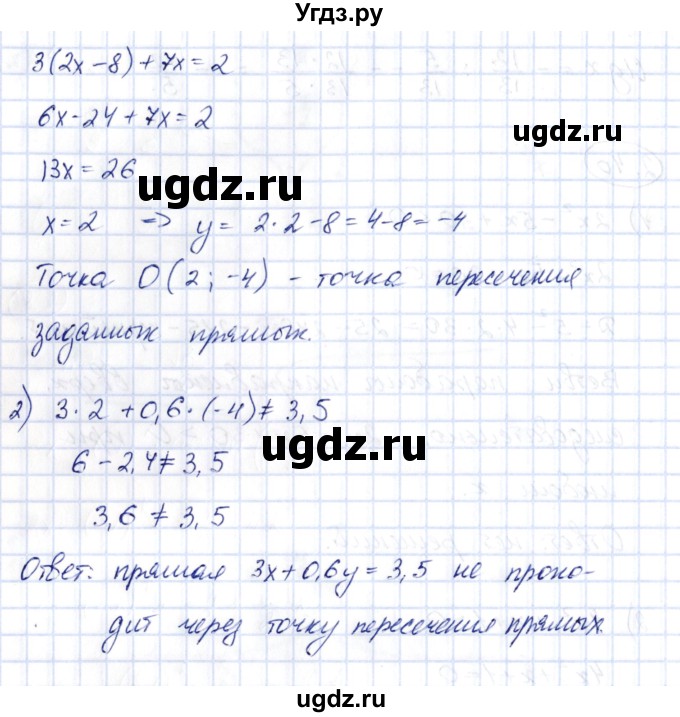 Угдз.ру
3(2x-8)+7x=2
6x-24+7x=2
ugdz.ru
13x=26
ugdz.ru
x=2 => y= 2·2-8=4-8=-4
Точка O(2; -4) - точка пересечения
заданных прямых.
ugdz.ru
2) 3·2+0,6·(-4)≠3,5
ugdz.ru
6-2,4≠3,5
3,6≠3,5
ugdz.ru
Ответ: прямая 3x+0,6y=3,5 не прохо-
дит через точку пересечения прямых.
ugdz.ru